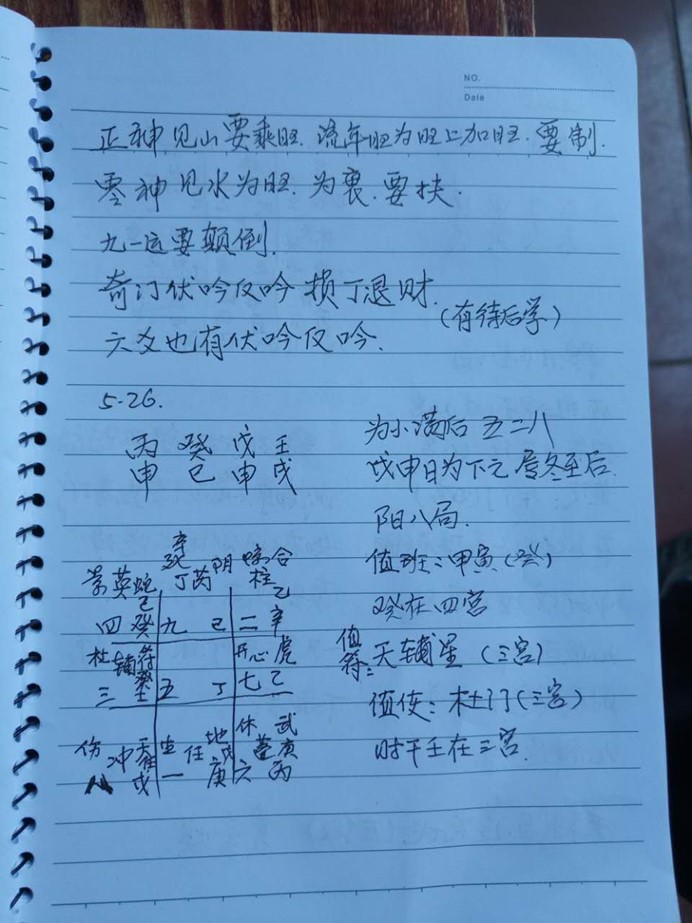 NO.
Date
正神见山要乘旺.流年旺为旺上加旺.要制.
零神见水为旺.为衰.要扶.
九一运要颠倒.
奇门伏吟反吟损丁退财.
(有待后学)
六爻也有伏吟反吟.
5-26.
丙 癸 戊 壬
申 巳 申 戌
为小满后 五二八
戊申日为下元 属冬至后
阳八局.
值班:甲寅(癸)
癸在四宫
值符:天辅星(三宫)
值使:杜门(三宫)
时干壬在三宫.
辛
景英蛇 死丁芮阴 惊柱合
己 乙
四癸 九 己 二辛
杜辅符 开心虎
三 癸壬 五 丁 七乙
伤 冲天 生任地 休蓬武
戊 一 庚 六 丙